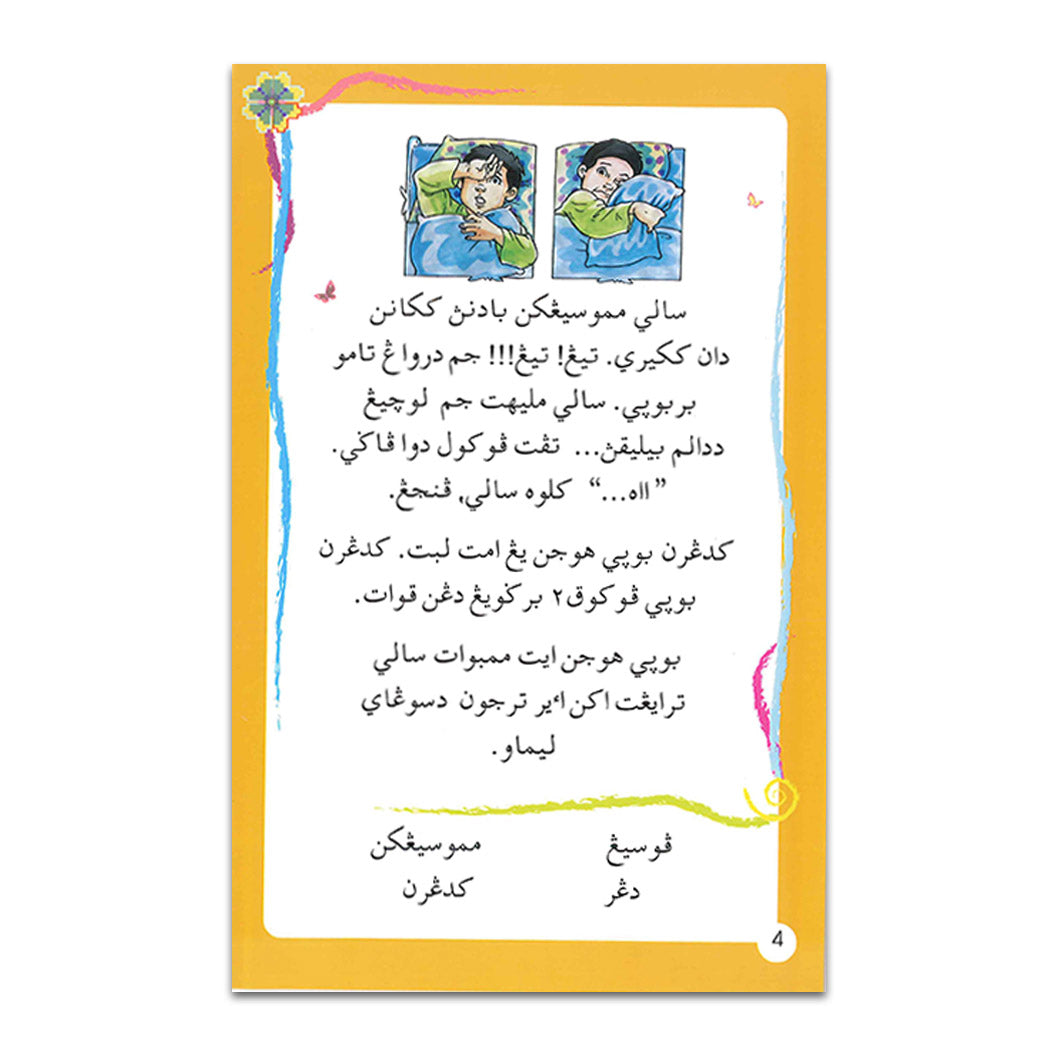 سالي مموسيڠكن بادنڽ ككانن
دان ككيري. تيڠ! تيڠ!!! جم درواڠ تامو
بربوڽي. سالي مليهت جم لوچيڠ
ددالم بيليقڽ... تڤت ڤوكول دوا ڤاݢي.
”ااه...“ كلوه سالي, ڤنجڠ.
كدڠرن بوڽي هوجن يڠ امت لبت. كدڠرن
بوڽي ڤوكوق٢ برݢويڠ دڠن قوات.
بوڽي هوجن ايت ممبوات سالي
ترايڠت اكن اٴير ترجون دسوڠاي
ليماو.
ڤوسيڠ مموسيڠكن
دڠر كدڠرن
4